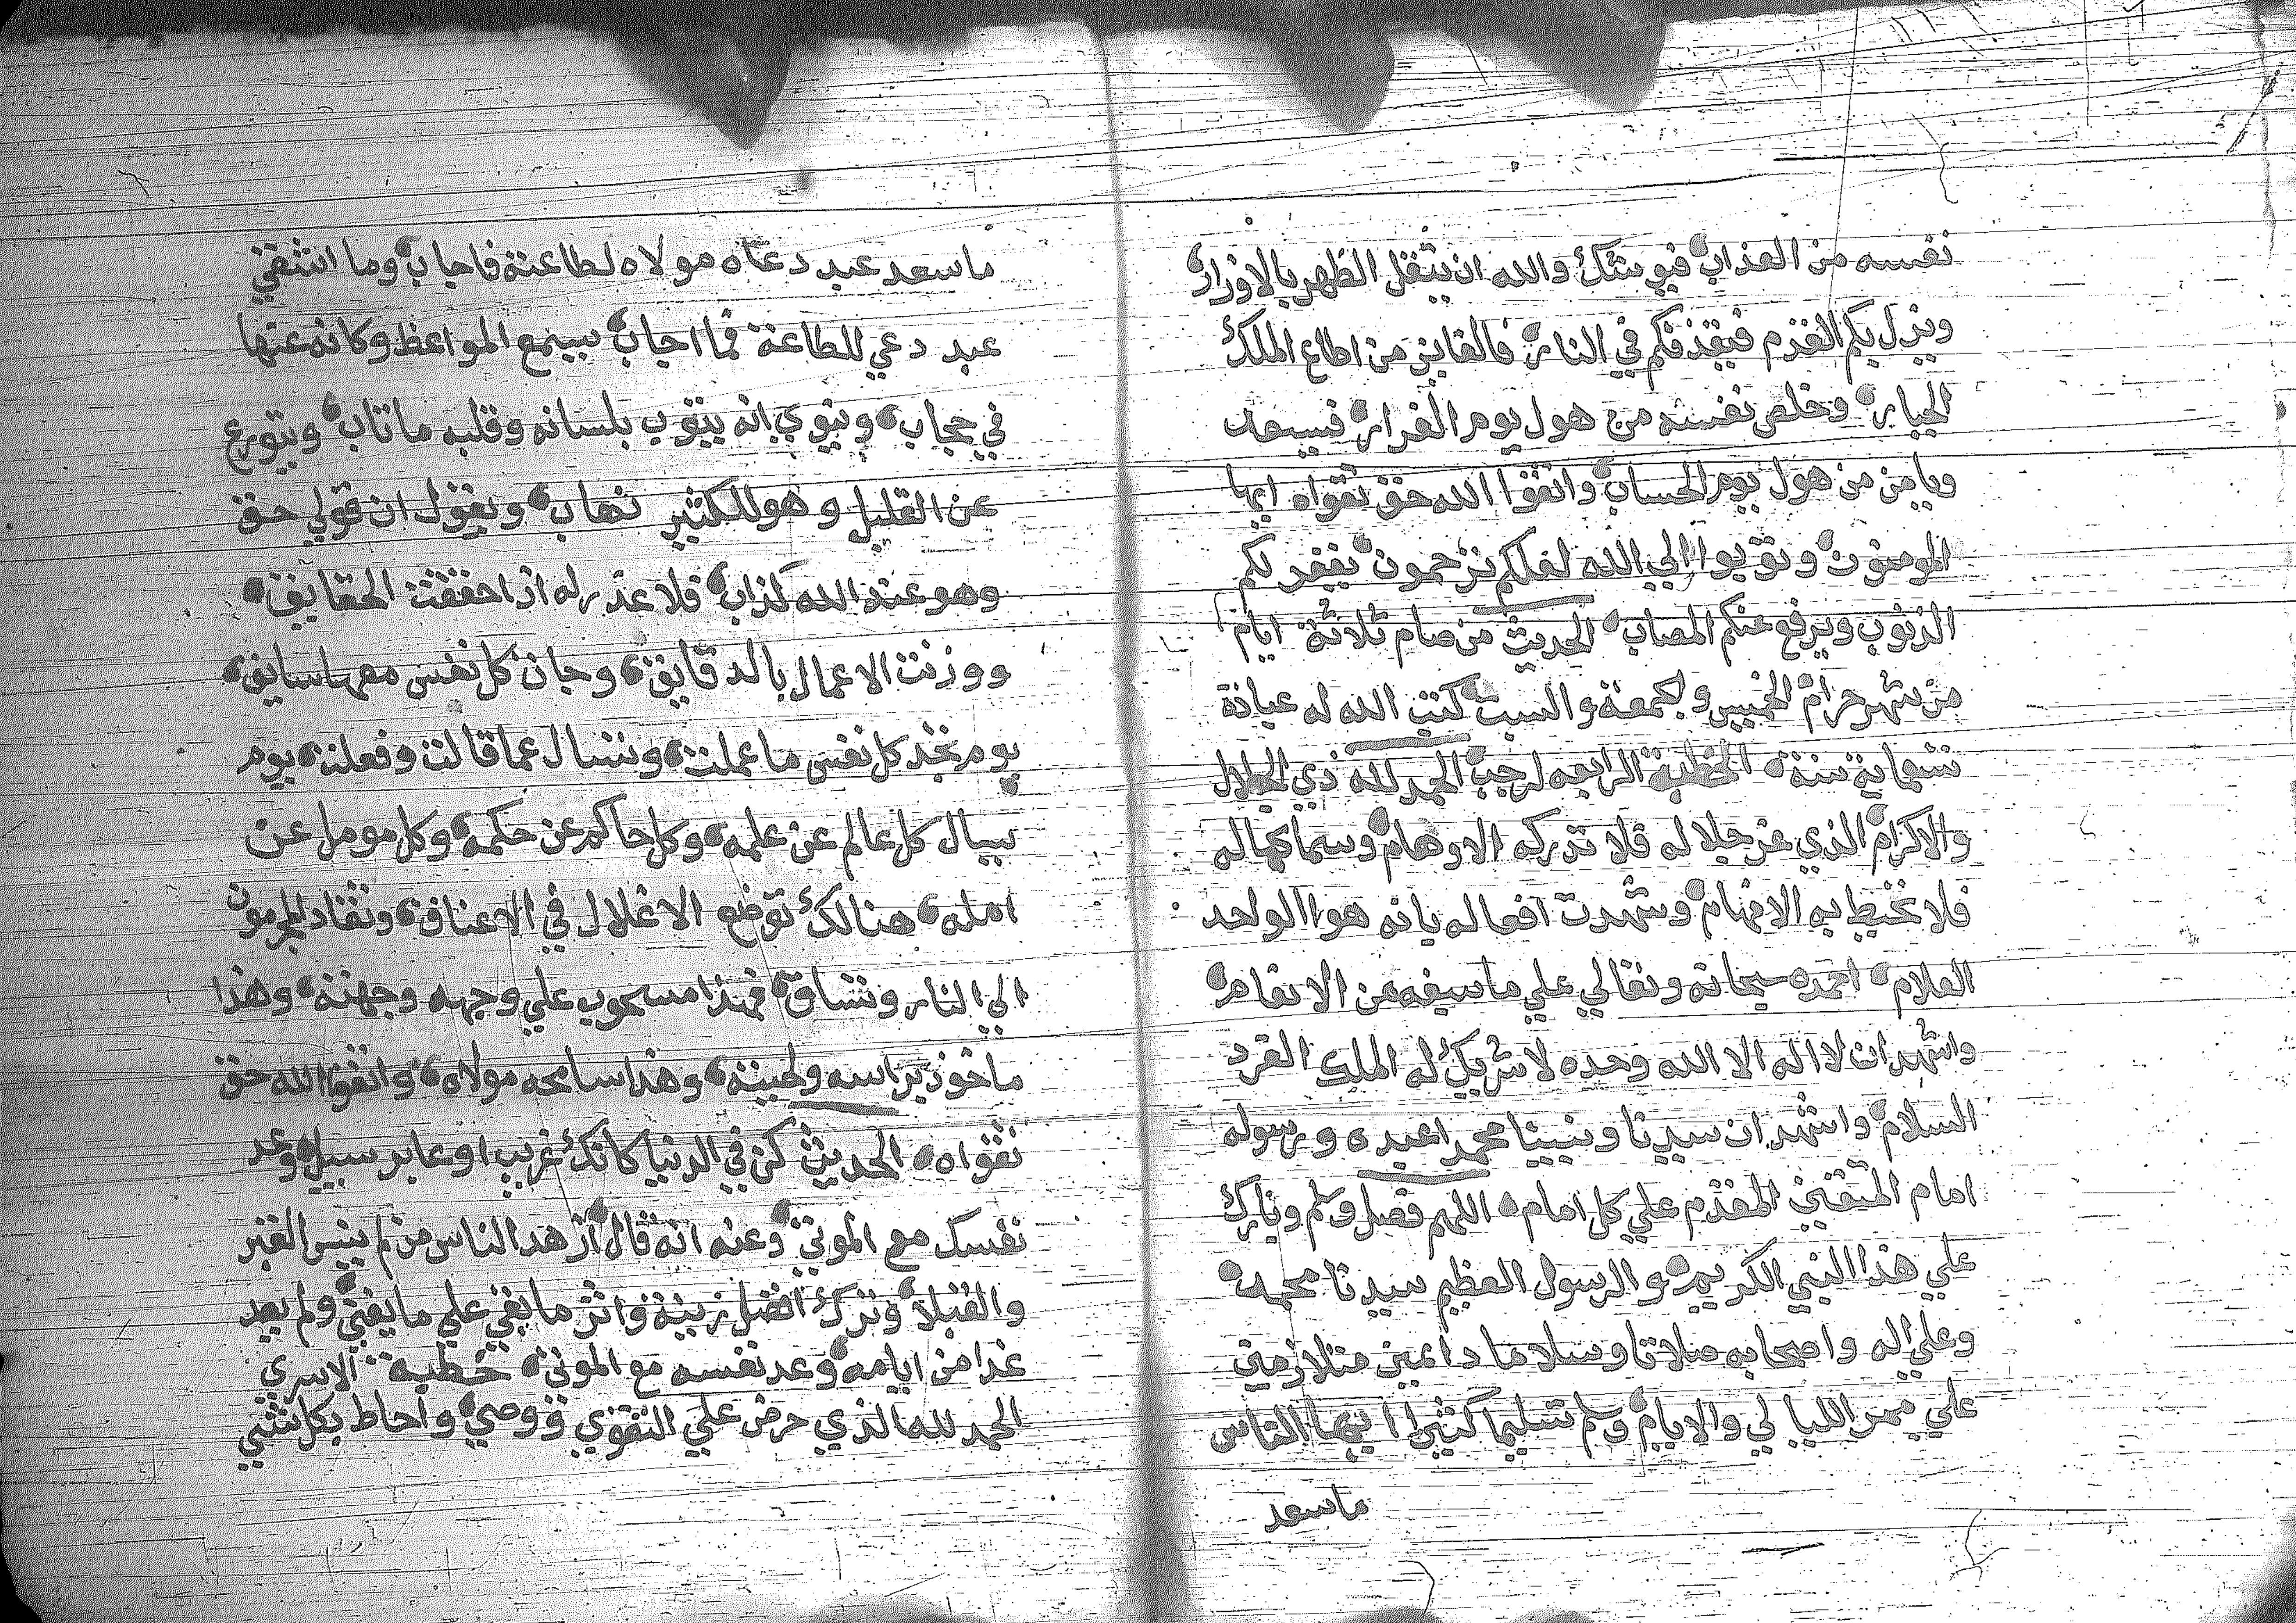 نفسه من العذاب فيوشك والله ان يثقل الظهر بالاوزار
وينزل بكم الغرم فيقذفكم في النار فالفايز من اطاع الملك
الجبار وخلص نفسه من هول يوم الفرار فيسعد
ويامن من هول يوم الحساب واتقوا الله حق تقواه ايها
المومنون وتوبوا الي الله لعلكم ترحمون يغفر لكم
الذنوب ويرفع عنكم المصاب الحديث من صام ثلاثة ايام
من شهر حرام الخميس والجمعة والسبت كتب الله له عبادة
تسعماية سنة الخطبة الرابعه لرجب الحمد لله ذي الجلال
والاكرام الذي عز جلاله فلا تدركه الاوهام وسما كماله
فلا تحيط به الافهام وشهدت افعاله بانه هو الواحد
العلام احمده سبحانه وتعالي علي ما سبغه من الانعام
واشهد ان لا اله الا الله وحده لا شريك له الملك الفرد
السلام واشهد ان سيدنا ونبينا محمدا عبده ورسوله
امام المتقين المقدم علي كل امام اللهم فصل وسلم وبارك
علي هذا النبي الكريم والرسول العظيم سيدنا محمد
وعلي اله واصحابه صلاتا وسلاما دايمين متلازمين
علي ممر الليالي والايام وسلم تسليما كثيرا ايها الناس
ماسعد
ماسعد عبد دعاه مولاه لطاعته فاجاب وما اشقي
عبد دعي للطاعة فما اجاب يسمع المواعظ وكانه عنها
في حجاب وينوي انه يتوب بلسانه وقلبه ما تاب ويتورع
عن القليل وهو للكثير نهاب ويقول ان قولي حق
وهو عند الله كذاب فلا عذر له اذا حققت الحقايق
ووزنت الاعمال بالدقايق وجات كل نفس معها سايق
يوم تجد كل نفس ما عملت وتسال عما قالت وفعلت يوم
يسال كل عالم عن علمه وكل حاكم عن حكمه وكل مومل عن
امله هنالك توضع الاغلال في الاعناق وتقاد المجرمون
الي النار وتساق فهذا مسحوب علي وجهه وجهته وهذا
ماخوذ براسه ولحيته وهذا سامحه مولاه واتقوا الله حق
تقواه الحديث كن في الدنيا كانك غريب او عابر سبيل وعد
نفسك مع الموتي وعنه انه قال ازهد الناس من لم ينس القبر
والبلا وترك افضل زينة واثر ما يبقي علي ما يفني ولم يعد
غدا من ايامه وعد نفسه مع الموتي خطبة الاسري
الحمد لله الذي حرض علي التقوي ووصي واحاط بكل شي